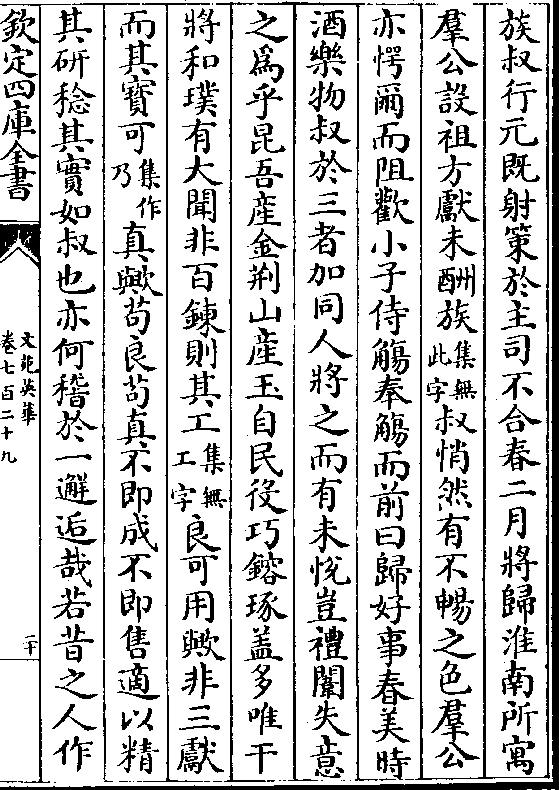 族叔行元既射策於主司不合春二月將歸淮南所寓
羣公設祖方獻未酬族集無此字叔悄然有不暢之色羣公
亦愕爾而阻歡小子侍觴奉觴而前曰歸好事春美時
酒樂物叔於三者加同人將之而有未悅豈禮闈失意
之為乎昆吾産金荆山産玉自民役巧鎔琢盖多唯干
將和璞有大聞非百鍊則其工集無工字良可用歟非三獻
而其寳可集作乃真歟苟良苟真不即成不即售適以精
其研稔其實如叔也亦何稽於一邂逅哉若昔之人作
欽定四庫全書
文苑英華
卷七百二十九
二十